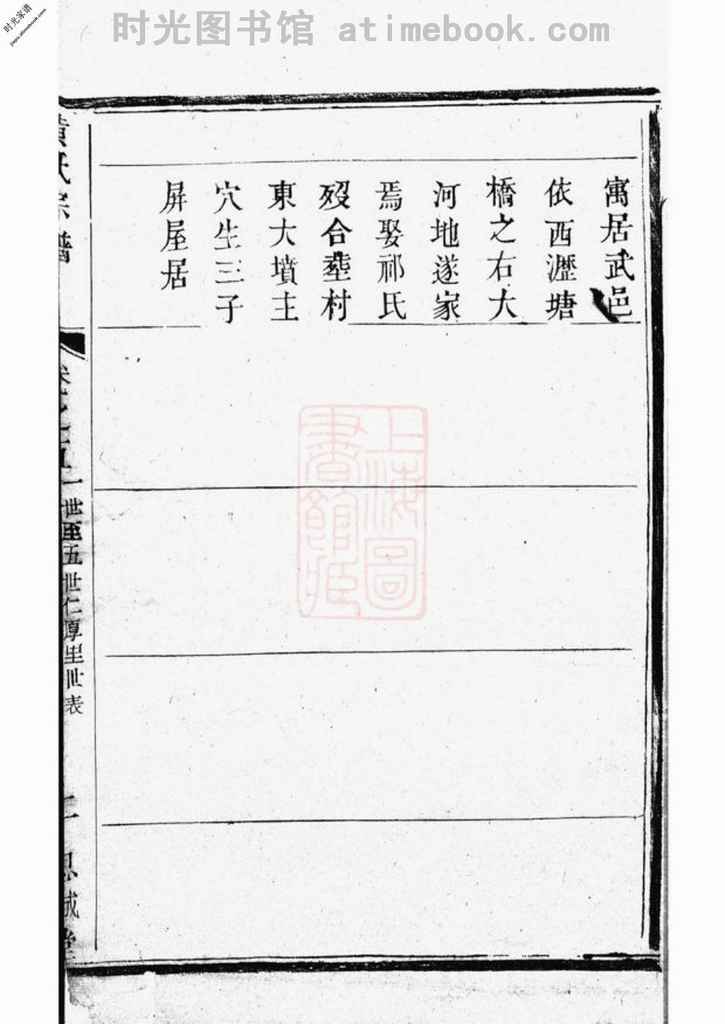 时光图书馆 atimebook.com
时光家谱
寓居武邑
依西瀝塘
橋之右大
河地遂家
焉娶祁氏
歿合塟村
東大墳主
穴生三子
屏屋居
黄氏宗譜
一世至五世仁厚里世表
二
思誠堂
上海圖
書館藏